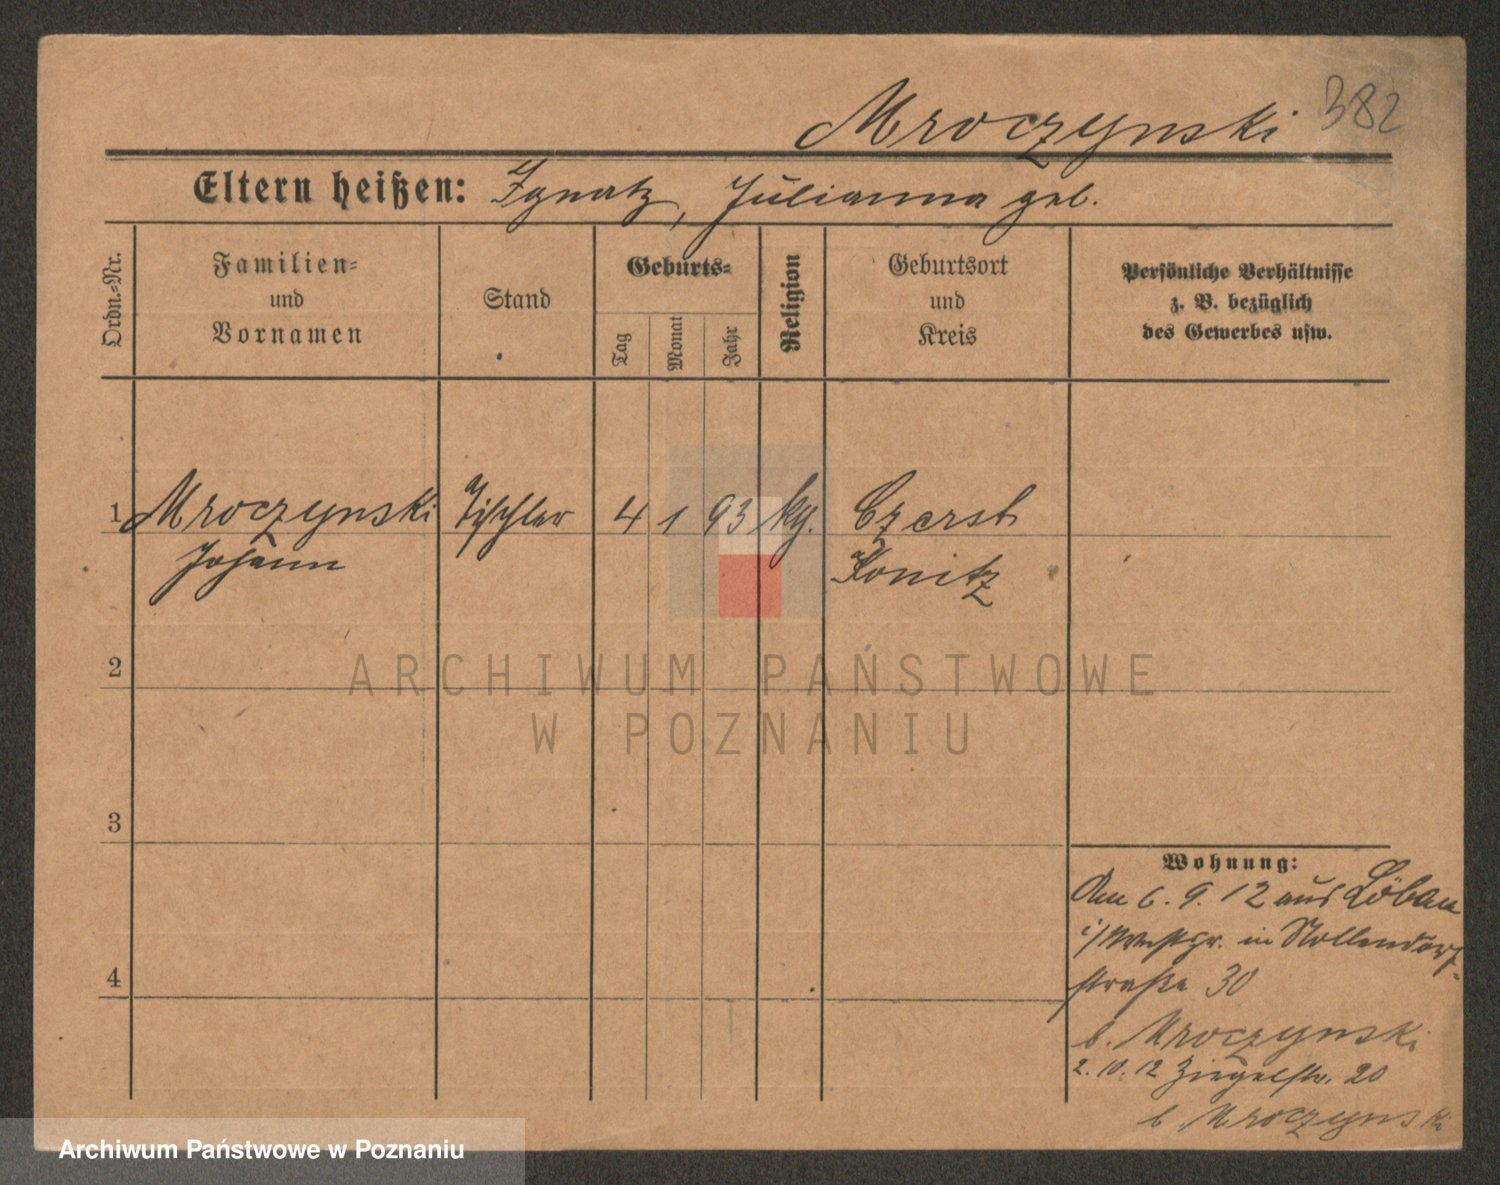 Mroczynski 382
Eltern heißen: Ignatz, Julianna geb.
Ordn.-Nr.
Familien-
und
Vornamen
Stand
Geburts-
Tag
Monat
Jahr
Religion
Geburtsort
und
Kreis
Persönliche Verhältnisse
z. B. bezüglich
des Gewerbes usw.
1 Mroczynski Tischler 4 1 93 kg. Czersk
Johann Konitz
2
3
4
ARCHIWUM PAŃSTWOWE
W POZNANIU
Wohnung:
Am 6. 9. 12 aus Löbau
i/Westpr. in Nollendorf-
straße 30
b. Mroczynski
2. 10. 12 Ziegelstr. 20
b Mroczynski
Archiwum Państwowe w Poznaniu